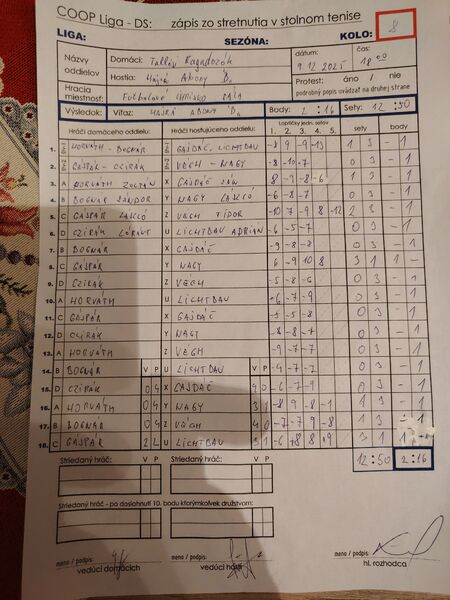 COOP Liga - DS: zápis zo stretnutia v stolnom tenise
LIGA: SEZÓNA: KOLO: 8
Názvy oddielov Domáci: dátum: 9.12.2025 čas: 18 00
Hostia: Abony Protest: áno / nie
podrobný popis uvádzať na druhej strane
Hracia miestnosť: FUTBALOVÉ IHRISKO
Výsledok: Víťaz: ABONY Body: 2 : 16 Sety: 12 : 50
Hráči domáceho oddielu: Hráči hosťujúceho oddielu: Loptičky jedn. setov sety body
1. 2. 3. 4. 5.
1. HORVÁTH - BOGNÁR GAJDÁČ, LICHTBAU -8 9 -9 -13 1 3 - 1
2. GAŠPÁR - CZIRÁK VÉGH - NAGY -8 -10 -7 0 3 - 1
3. A HORVÁTH ZOLTÁN X GAJDÁČ JÁN 8 -9 -8 -6 1 3 - 1
4. B BOGNÁR SÁNDOR Y NAGY LÁSZLÓ -6 -8 -7 0 3 - 1
5. C GAŠPÁR LÁSZLÓ Z VÉGH TIBOR -10 7 -9 8 -12 2 3 - 1
6. D CZIRÁK LÓRÁNT U LICHTBAU ADRIÁN -6 -5 -7 0 3 - 1
7. B BOGNÁR X GAJDÁČ -9 -8 -8 0 3 - 1
8. C GAŠPÁR Y NAGY 6 -9 10 8 3 1 1 -
9. D CZIRÁK Z VÉGH -5 -8 -6 0 3 - 1
10. A HORVÁTH U LICHTBAU -6 -7 -9 0 3 - 1
11. C GAŠPÁR X GAJDÁČ 0 3 - 1
12. D CZIRÁK Y NAGY -8 -8 -7 0 3 - 1
13. A HORVÁTH Z VÉGH -9 -7 -7 0 3 - 1
14. B BOGNÁR V P U LICHTBAU V P -4 -7 -7 0 3 - 1
15. D CZIRÁK 0 4 X GAJDÁČ 4 0 -6 -8 -7 0 3 - 1
16. A HORVÁTH 0 4 Y NAGY 3 1 -8 9 -8 1 3 - 1
17. B BOGNÁR 0 4 Z VÉGH 4 0 -7 -7 9 -8 1 3 - 1
18. C GAŠPÁR 2 2 U LICHTBAU 3 1 -6 8 9 3 1 1 -
Striedaný hráč: V P Striedaný hráč: V P 12:50 2:16
Striedaný hráč - po dosiahnutí 10. bodu ktorýmkoľvek družstvom:
meno / podpis: meno / podpis: meno / podpis:
vedúci domácich vedúci hostí hl. rozhodca